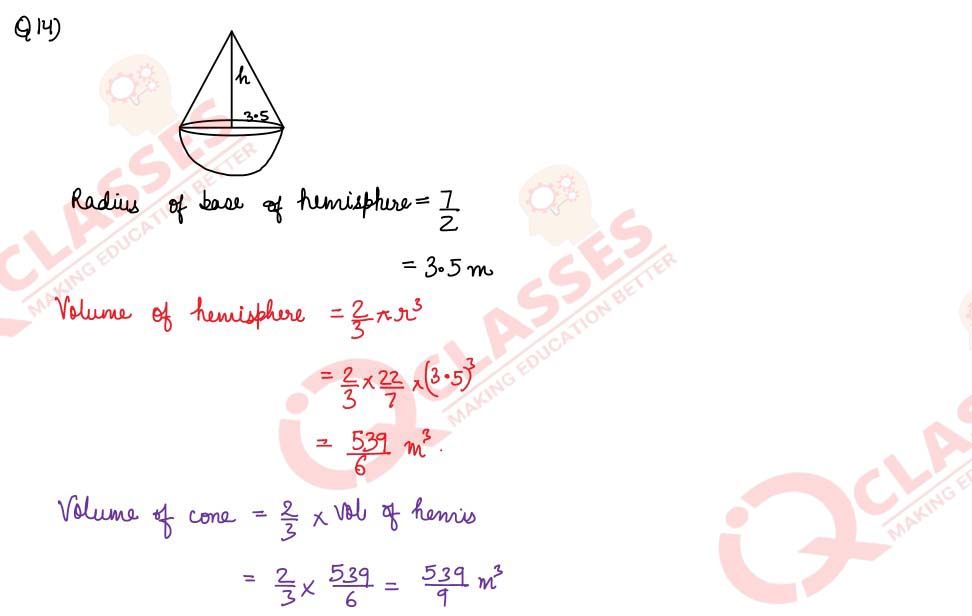 Q14)
h
3.5
Radius of base of hemisphere = 7/2
= 3.5 m
Volume of hemisphere = 2/3 π r³
= 2/3 × 22/7 × (3.5)³
= 539/6 m³.
Volume of cone = 2/3 × Vol of hemis
= 2/3 × 539/6 = 539/9 m³
CLASSES
MAKING EDUCATION BETTER
IQ CLASSES
MAKING EDUCATION BETTER
IQ CLASSES
MAKING EDUCATION BE